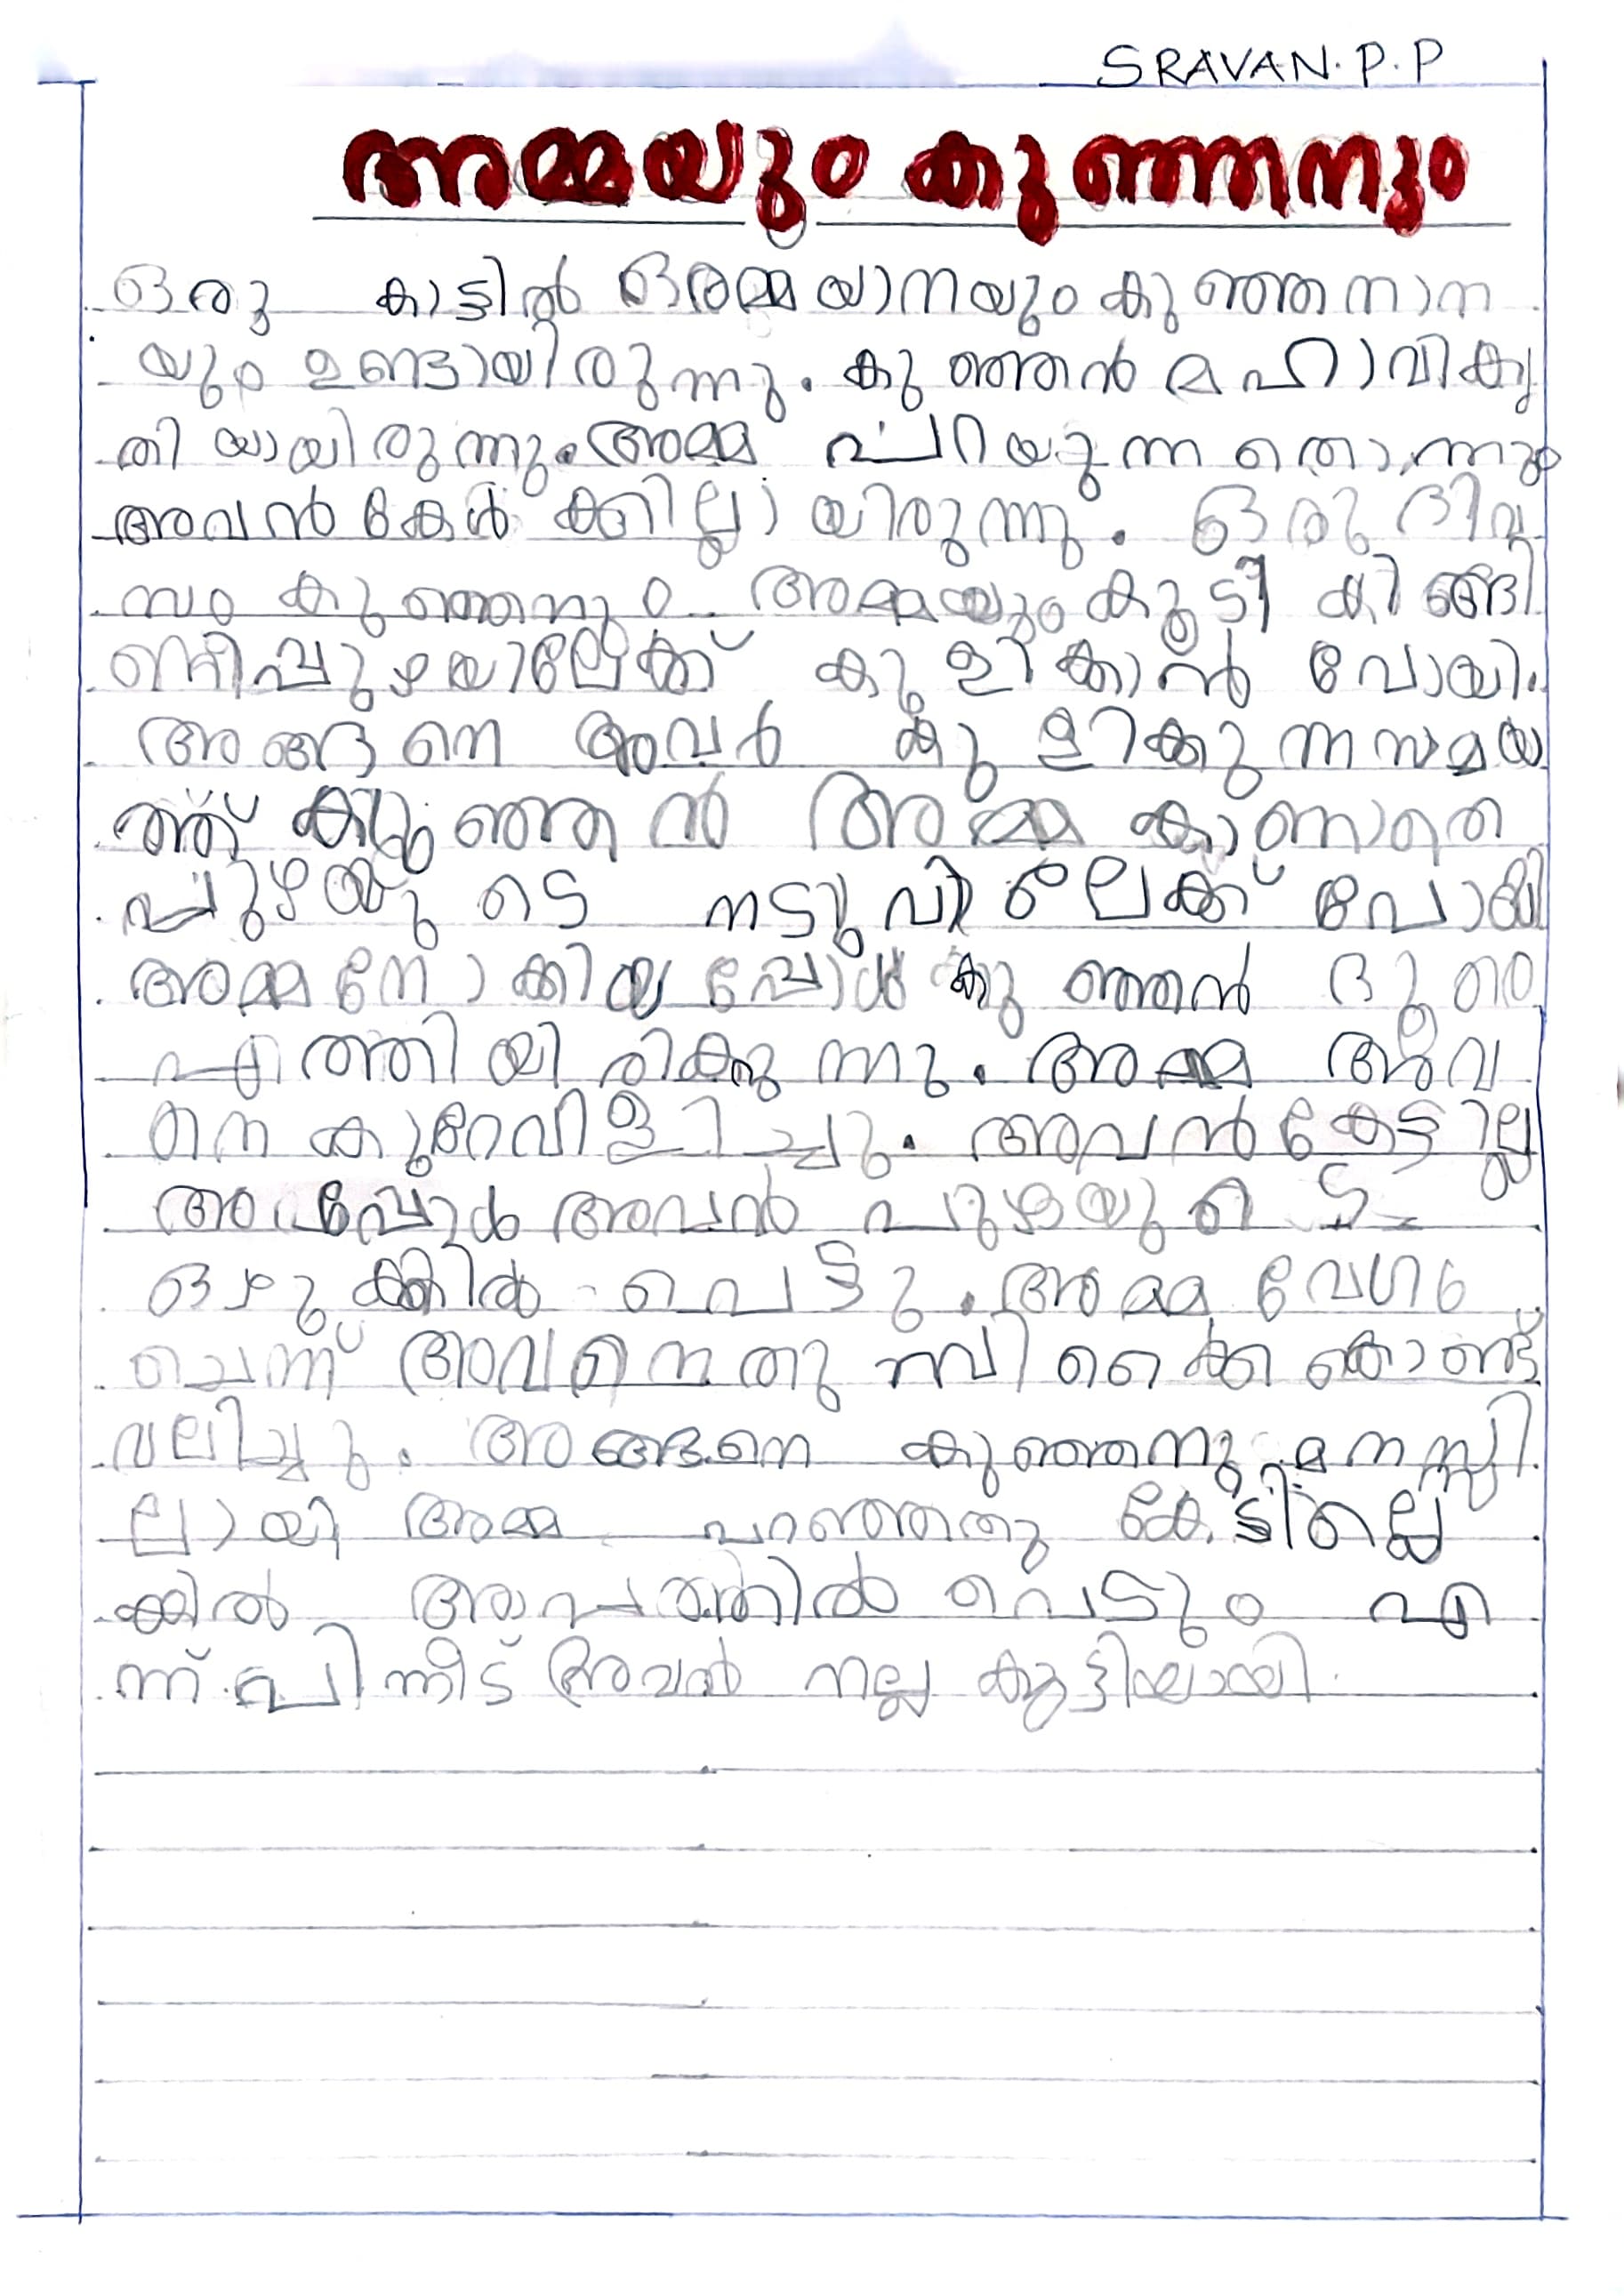 SRAVAN. P. P
അമ്മയും കുഞ്ഞനും
ഒരു കാട്ടിൽ ഒരമ്മയാനയും കുഞ്ഞനാന
യും ഉണ്ടായിരുന്നു. കുഞ്ഞൻ മഹാവികൃ
തിയായിരുന്നു. അമ്മ പറയുന്നതൊന്നും
അവൻ കേൾക്കില്ലായിരുന്നു. ഒരു ദിവ
സം കുഞ്ഞനും അമ്മയും കൂടി കിങ്ങി
ണിപ്പുഴയിലേക്ക് കുളിക്കാൻ പോയി.
അങ്ങനെ അവർ കുളിക്കുന്ന സമയ
ത്ത് കുഞ്ഞൻ അമ്മ കാണാതെ
പുഴയുടെ നടുവിലേക്ക് പോയി
അമ്മ നോക്കിയപ്പോൾ കുഞ്ഞൻ ദൂരെ
എത്തിയിരിക്കുന്നു. അമ്മ അവ
നെ കുറേവിളിച്ചു. അവൻ കേട്ടില്ല
അപ്പോൾ അവൻ പുഴയുടെ
ഒഴുക്കിൽ പെട്ടു. അമ്മ വേഗം
ചെന്ന് അവനെ തുമ്പികൈ കൊണ്ട്
വലിച്ചു. അങ്ങനെ കുഞ്ഞനു മനസ്സി
ലായി അമ്മ പറഞ്ഞതു കേട്ടില്ലെ
ങ്കിൽ ആപത്തിൽ പെടും എ
ന്ന് പിന്നീട് അവൻ നല്ല കുട്ടിയായി.